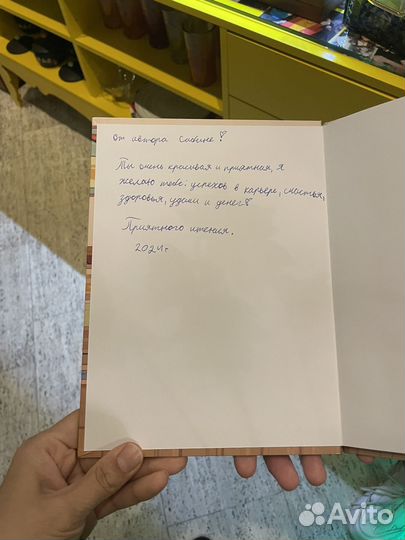 от автора Сабине!
Ты очень красивая и приятная, я
желаю тебе: успехов в карьере, счастья,
здоровья, удачи и денег!
Приятного чтения.
2024г
Avito